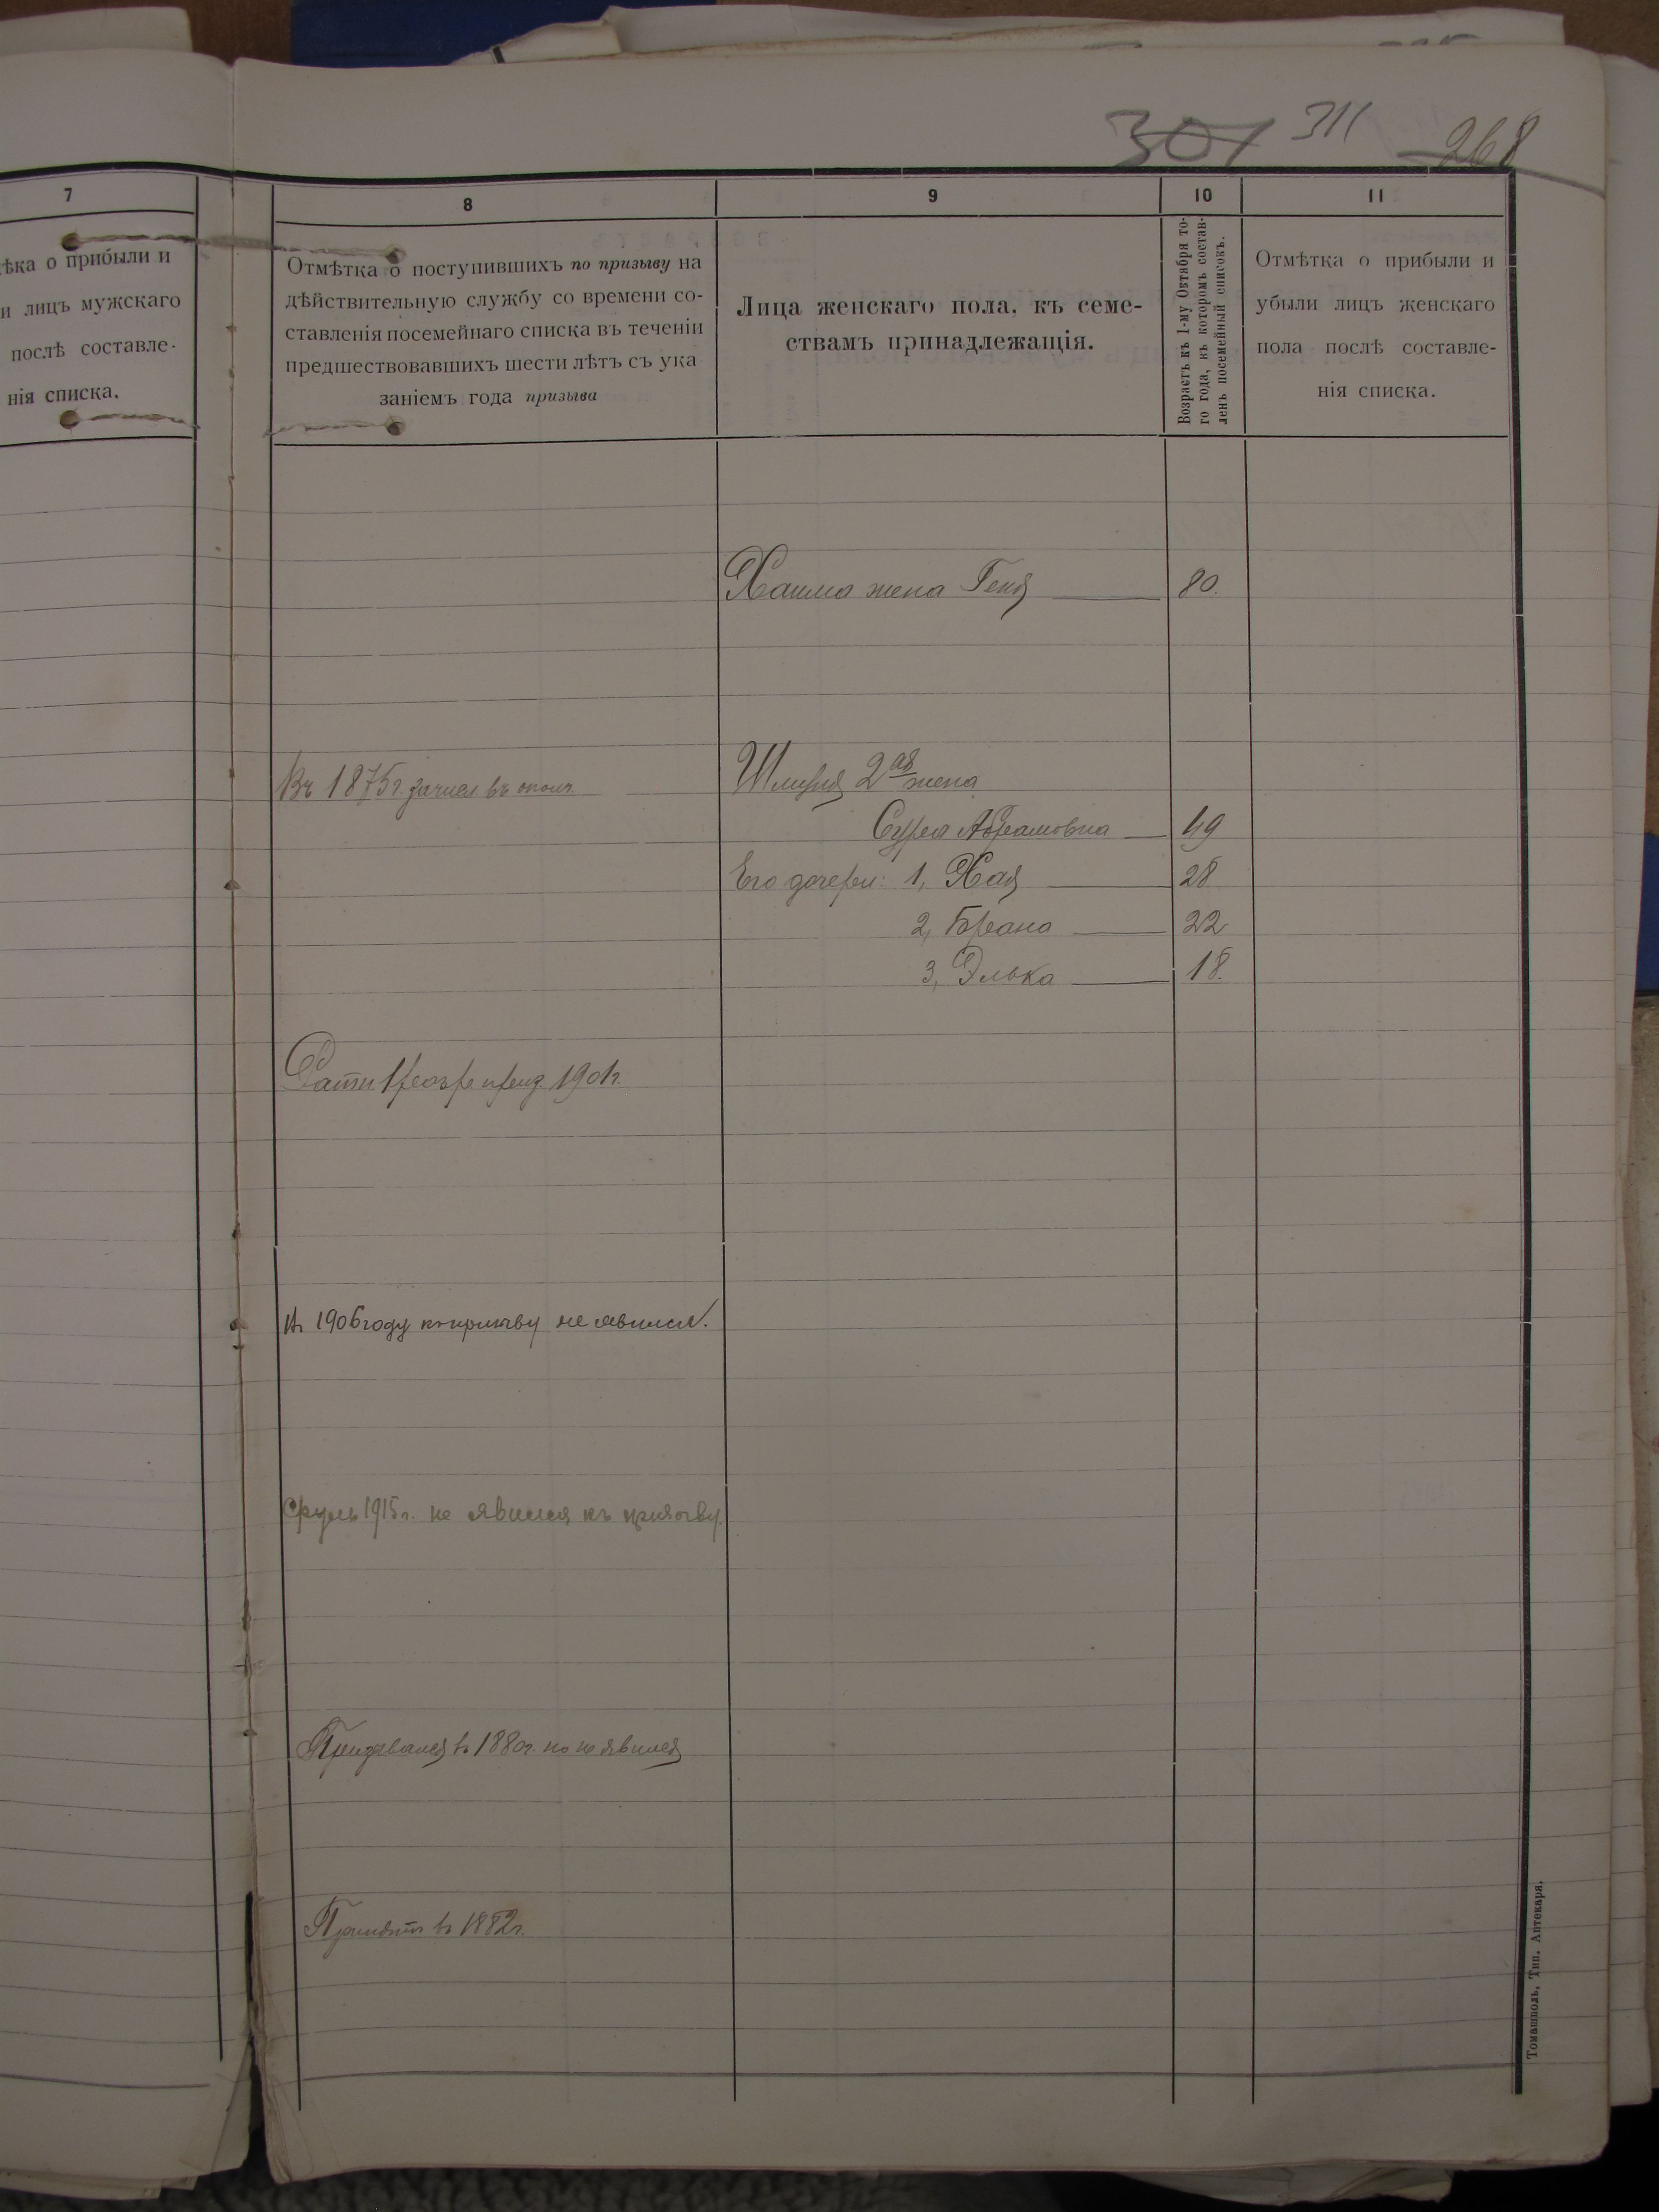 301 311 268
7
8
9
10
11
ѣка о прибыли и
и лицъ мужскаго
послѣ составле-
нія списка.
Отмѣтка о поступившихъ по призыву на
дѣйствительную службу со времени со-
ставленія посемейнаго списка въ теченіи
предшествовавшихъ шести лѣтъ съ ука
заніемъ года призыва
Лица женскаго пола, къ семе-
ствамъ принадлежащія.
Возрастъ къ 1-му Октября то-
го года, въ которомъ состав-
ленъ посемейный списокъ.
Отмѣтка о прибыли и
убыли лицъ женскаго
пола послѣ составле-
нія списка.
Хаима жена Геня 80.
Въ 1875г. зачисл. въ ополч.
2ая жена
Сура Абрамовна 49
Его дочери: 1, Хая 28
2, Брана 22
3, Элька 18.
Ратн 1 разр приз
1901г.
Въ 1906 году къ призыву не явился.
Сруль 1915г. не явился къ призыву.
Призывался въ 1880г. но не явился
въ 1882г.
Томашполь, Тип. Аптекаря.